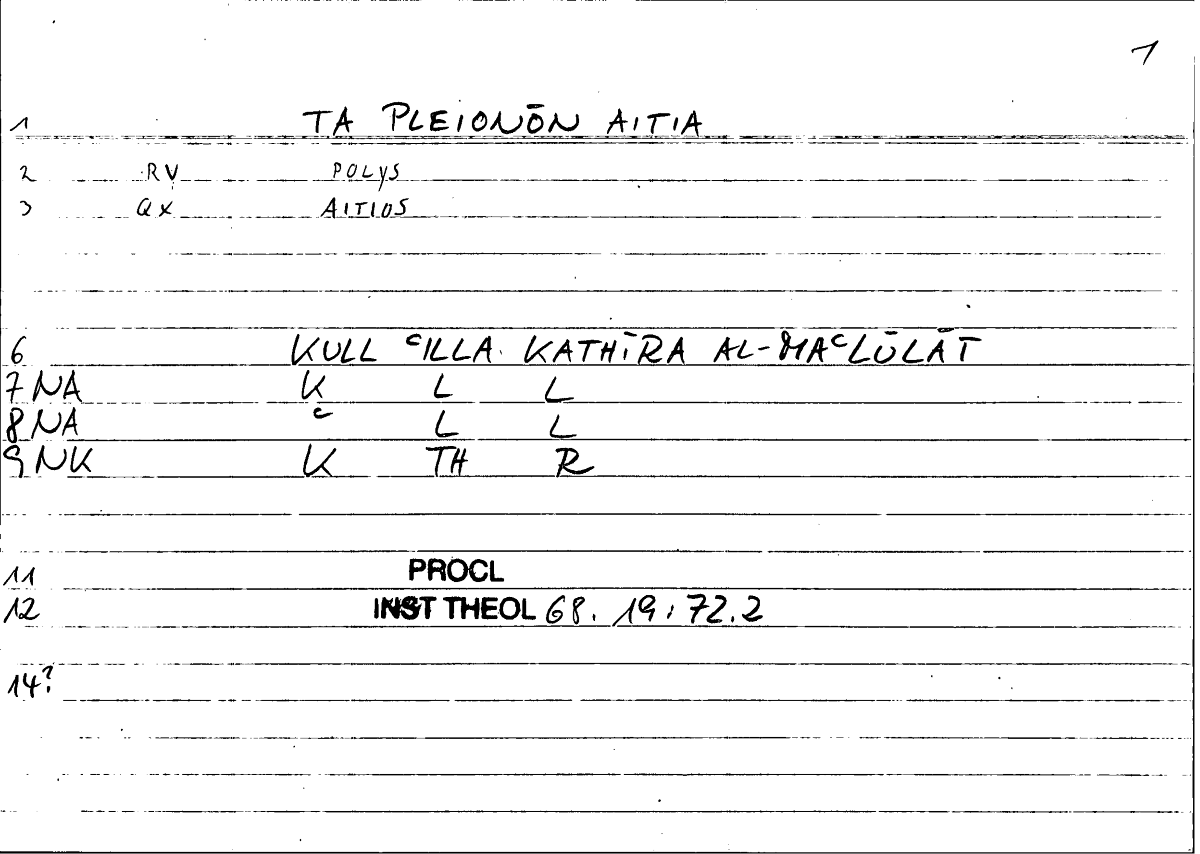 1
1 TA PLEIONŌN AITIA
2 RV POLYS
3 QX AITIOS
6 KULL ᶜILLA KATHĪRA AL-MAᶜLŪLĀT
7 NA K L L
8 NA ᶜ L L
9 NK K TH R
11 PROCL
12 INST THEOL 68. 19; 72.2
14?